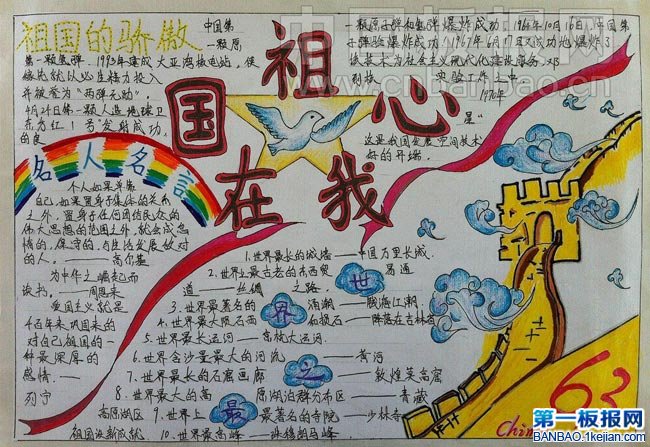 祖国的骄傲
中国第
一颗原
第一颗氢弹．1993年建成大亚湾核电站，
并被誉为"两弹元勋"．
4月24日第一颗人造地球卫
东方红1号"发射成功，
的良
一颗原子弹和氢弹爆炸成功，1964年10月16日，中国第
子弹爆炸成功！1967年6月17日又成功地爆炸了
1970年
星"
这是我国发展空间技术
好的开端．
祖
国
心
在
我
名人名言
个人如果单靠
自己，如果置身于集体的关系
之外，置身于任何团结民众的
伟大思想的范围之外，就会成怠
惰的，保守的，与生活发展敌对
的人．——高尔基
为中华之崛起而
读书．——周恩来
爱国主义就是
千百年来巩固来的
对自己祖国的一
种最深厚的
感情．——
列宁
世
界
之
最
1.世界最长的城墙——中国万里长城．
2.世界上最古老的东西贸易通
道——丝绸之路
3.世界最著名的涌潮——钱塘江潮．
4.世界最大陨石西
5.世界最长运河——京杭大运河．
6.世界含沙量最大的河流——黄河
7.世界最长的石窟画廊——敦煌莫高窟
8.世界最大的高原湖泊群分布区——青藏
高原湖区 9.世界上最著名的寺院——少林寺
10.世界最高峰——珠穆朗玛峰
63
China
第一板报网
BANBAO.1kejian.com